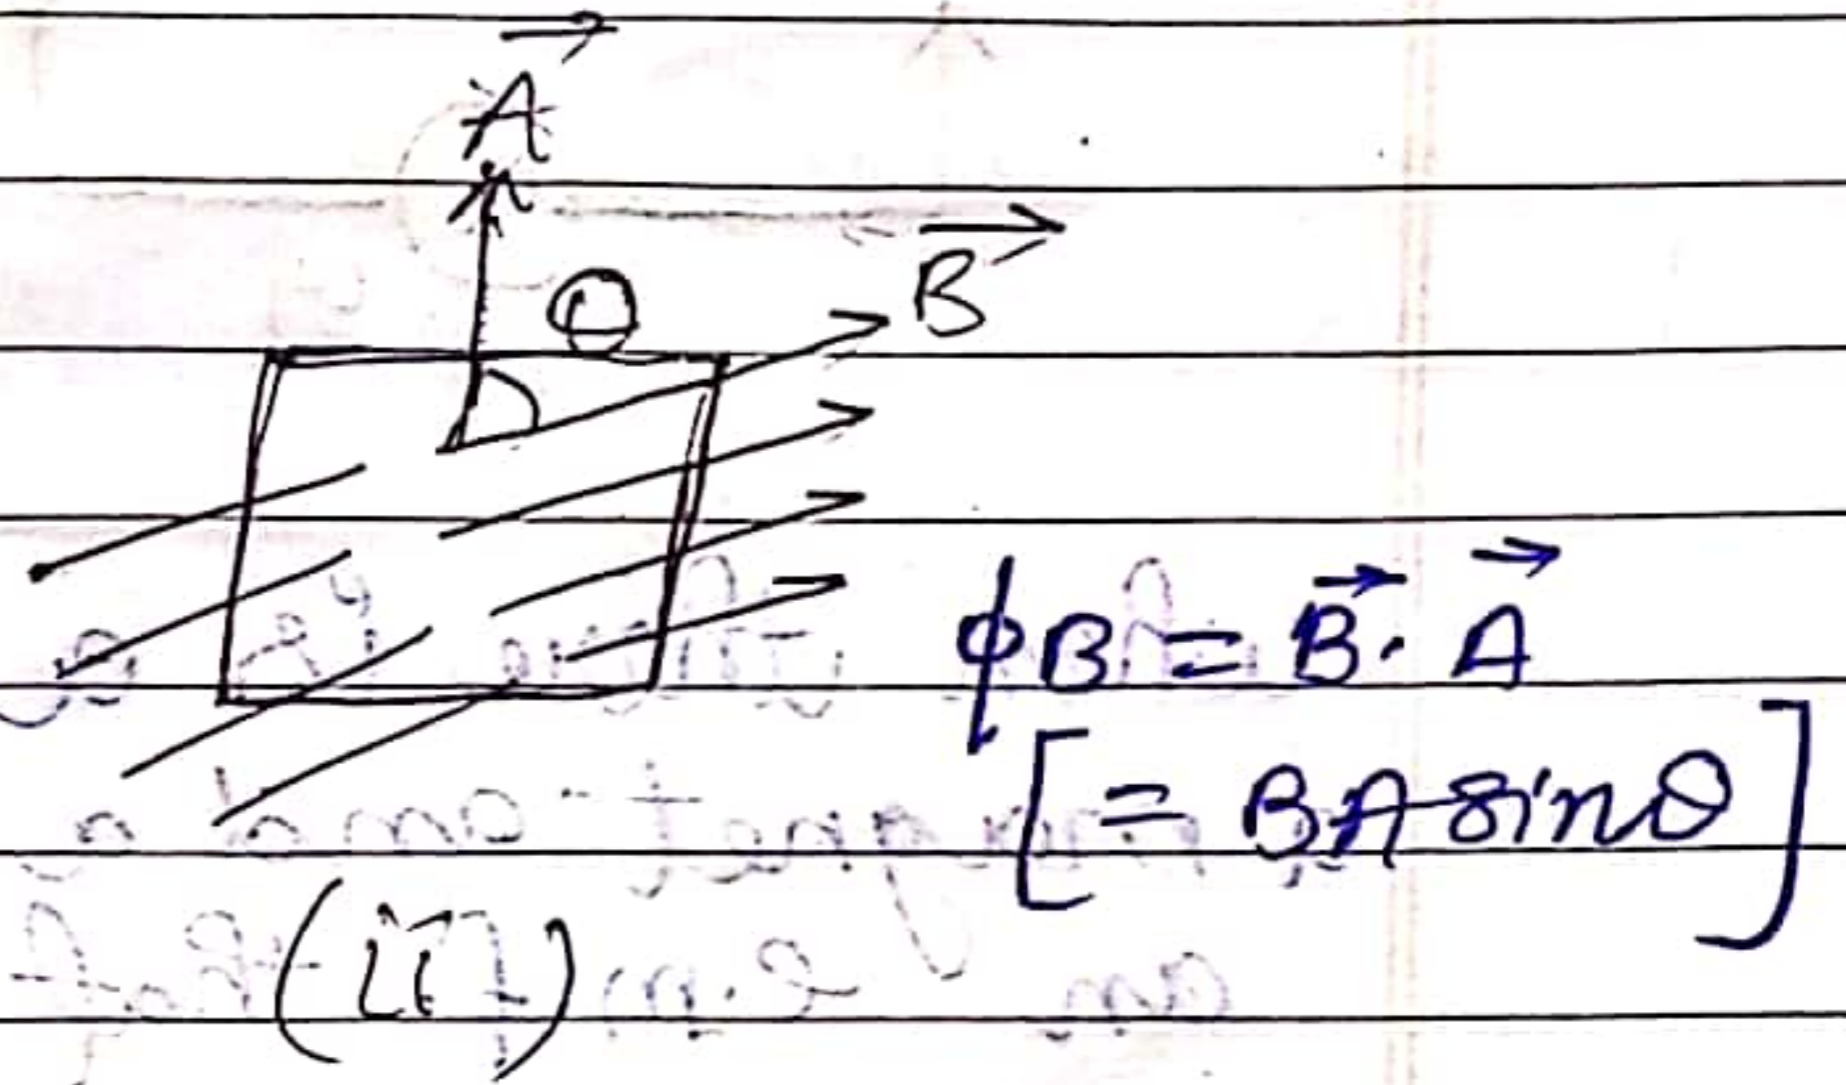 A⃗
θ
B⃗
ϕB = B⃗ · A⃗
[= BA sinθ]
(ii)